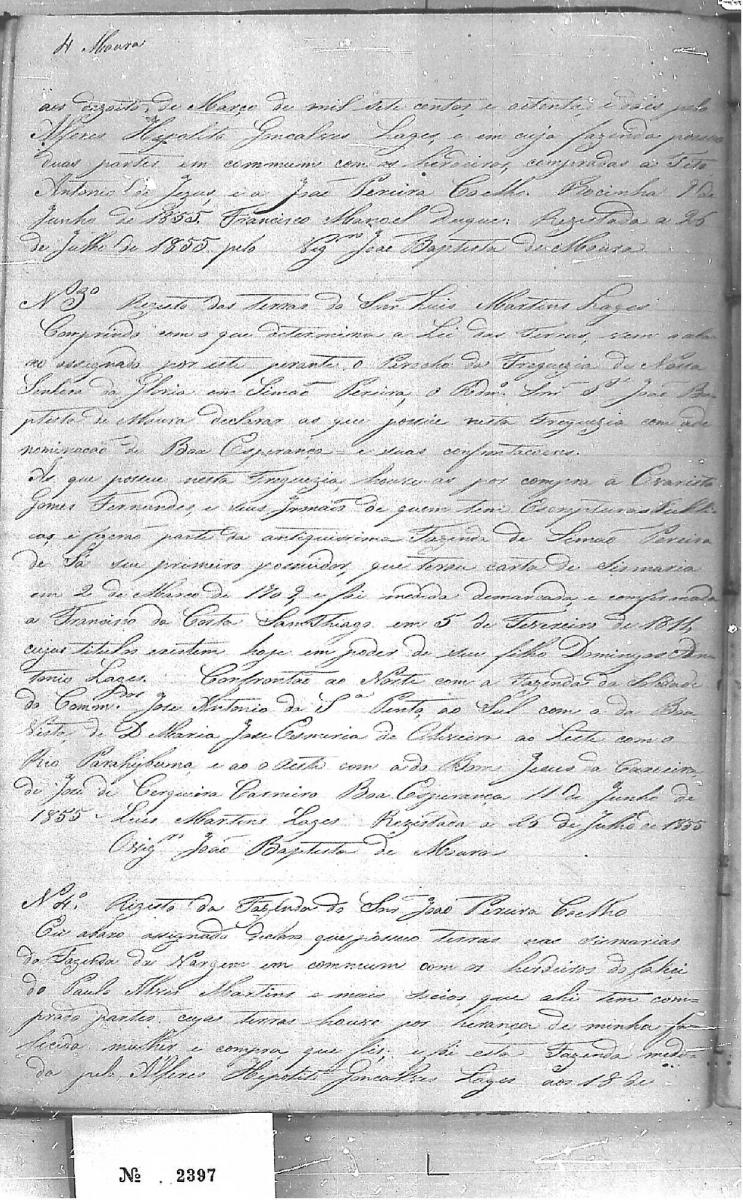 4 Moura
aos dezoito de Março de mil sete centos, e oitenta, e dois pelo
Alferes Hipolito Gncalves Lages, e em cuja fazenda possuo
duas partes em commum com os herdeiros, compradas a
Antonio de Jezus, e a José Pereira Coelho. Rocinha 9 de
Junho de 1855. Francisco Manoel Duque. Rezistada a 25
de Julho de 1855 pelo Vigrº João Baptista de Moura
Nº 3º Rezisto das terras do Snr Luis Martins Lages
Comprindo com o que determina a Lei das Terras, vem o aba
xo assignado por este perante o Parocho da Freguezia de Nossa
Senhora da Gloria em Simão Pereira, o Rdmº Snr João Ba
ptista de Moura declarar as que possue nesta Freguezia com a de
nominação de Boa Esperança e suas confrontacoens.
As que possue nesta Freguezia houve as por compra a Evaristo
Gomes Fernandes, e seus Irmaõs de quem tem Escripturas Publi
cas, e fazem parte da antiquissima Fazenda de Simão Pereira
de Sá seu primeiro possuidor, que terou carta de Sismaria
em 2 de Março de 1709, e foi medida demarcada, e confirmada
a Francisco da Costa SanThiago, em 5 de Fevereiro de 1811,
cujos titulos existem hoje em poder de seu filho Domingos An
tonio Lages. Confrontão ao Norte com a Fazenda da Soledade
do Comm.dor José Antonio da Sª Pinto, ao Sul com a da Boa
Vista, de D Maria José Esmeria de Oliveira ao Leste com o
Rio Parahybuna, e ao oeste com a do Bom Jesus da
de José de Cerqueira Carneiro Boa Esperança 11 de Junho de
1855. Luis Martins Lages Rezistada a 25 de Julhº de 1855
O Vigrº João Baptista de Moura
Nº 4º. Rezisto da Fazenda do Snr João Pereira Coelho
Eu abaxo assignado declaro que possuo terras nas sismarias
da Fazenda da Vargem em commum com os herdeiros do faleci
do Paulo Alves Martins e mais socios, que ahi tem com
prado partes, cujas terras houve por herança de minha fa
lecida mulher, e compra que fiz; e foi esta Fazenda medi
da pelo Alferes Hipolito Goncalves Lages aos 18 de
Nº 2397